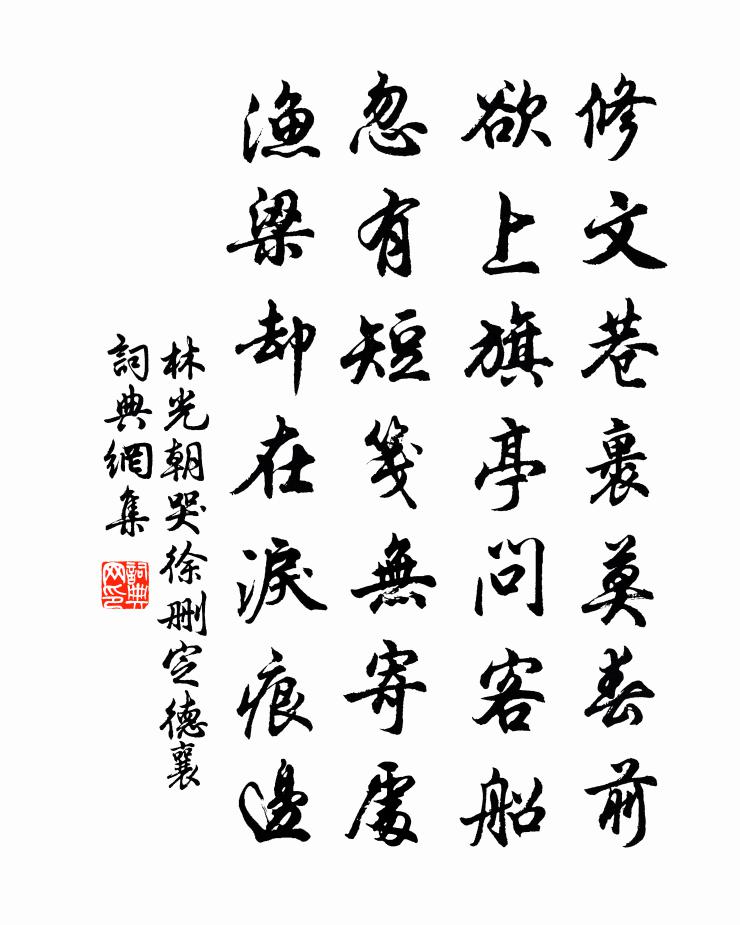 修文巷裏莫春前
欲上旗亭問客船
忽有短箋無寄處
漁梁却在淚痕邊
林光朝哭徐删定德襄
詞典網集
詞典网印